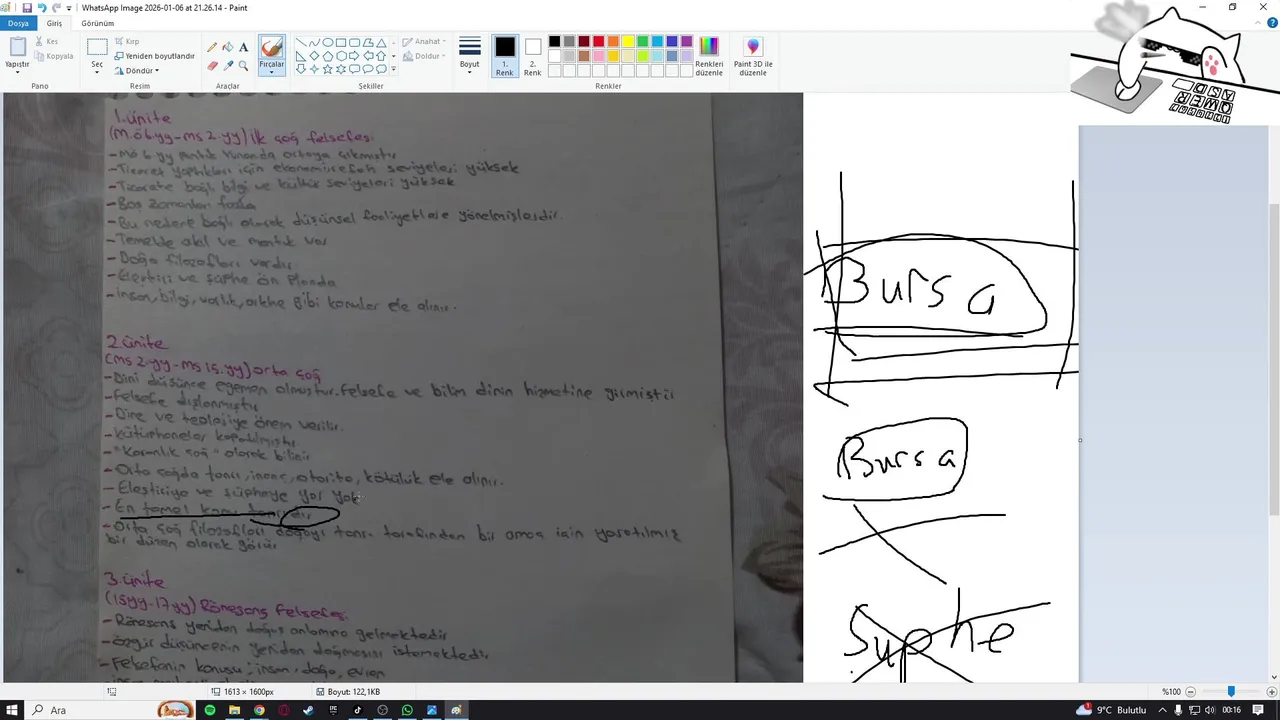 WhatsApp Image 2026-01-06 at 21.26.14 - Paint
Dosya Giriş Görünüm
Yapıştır
Kes
Kopyala
Pano
Seç
Kırp
Yeniden boyutlandır
Döndür
Resim
Araçlar
Fırçalar
Anahat
Doldur
Şekiller
Boyut
1. Renk
2. Renk
Renkleri düzenle
Renkler
Paint 3D ile düzenle
QWER
ASD
1.ünite
(M.Ö 6.yy-ms 2.yy) ilk çağ felsefesi:
-Mö 6.yy Yunanda ortaya çıkmıştır
-Ticaret yaptıkları için ekonomi refah seviyeleri yüksek
-Ticarete bağlı bilgi ve kültür seviyeleri yüksek
-Boş zamanları fazla
-Bu nedene bağlı olarak düşünsel faaliyetlere yönelmişlerdir.
-Temelde akıl ve mantık var
-Doğa filozofları vardır.
-Eleştiri ve şüphe ön planda
-insan, bilgi, varlık, arkhe gibi konular ele alınır.
2.ünite
(ms 2.yy-ms 15.yy) orta çağ
-Dini düşünce egemen olmuştur. Felsefe ve bilim dinin hizmetine girmiştir
-Felsefe dışlanmıştır
-Dine ve teolojiye önem verilir.
-Kütüphaneler kapatılmıştır
-"Karanlık çağ" olarak bilinir
-Orta çağda tanrı, inanç, otorite, kötülük ele alınır.
-Eleştiriye ve şüpheye yer yok
-En temel konu tanrıdır
-Orta çağ filozofları doğayı tanrı tarafından bir amaç için yaratılmış
bir düzen olarak görür
3.ünite
(15yy-17yy) Rönesans Felsefesi:
-Rönesans yeniden doğuş anlamına gelmektedir
-özgür düşüncenin yeniden doğması istemektedir
-Felsefenin konusu; insan, doğa, evren
Bursa
Bursa
Şüphe
1613 × 1600px
Boyut: 122,1KB
%100
Ara
9°C Bulutlu
00:16